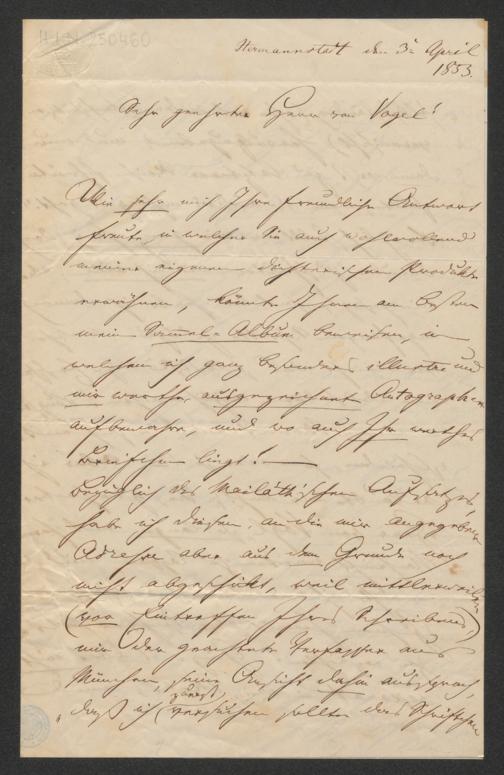 H.I.N. 250460
Hermannstadt den 3t April
1853.
Sehr geehrter Herr von Vogel!
Wie sehr mich Ihre freundliche Antwort
freute, in welcher Sie auch wohlwollend
meiner eigenen dichterischen Produkte
erwähnen, könnte Ihnen am besten
mein Samel-Album beweisen, in
welchem ich ganz besonders illustre und
mir werthe, ausgezeichnet Autographe
aufbewahre, und wo auch Ihr werthes
Briefchen liegt! —
Bezüglich des Mailáth'schen Aufsatzes,
habe ich diesen, an die mir angegebene
Adresse aber aus dem Grunde noch
nicht abgeschikt, weil mittlerweile
(vor Eintreffen Ihres Schreibens,)
mir der geachtete Verfasser aus
München seine Ansicht dahin aussprach,
zuerst
"daß ich versuchen sollte das Schriftchen